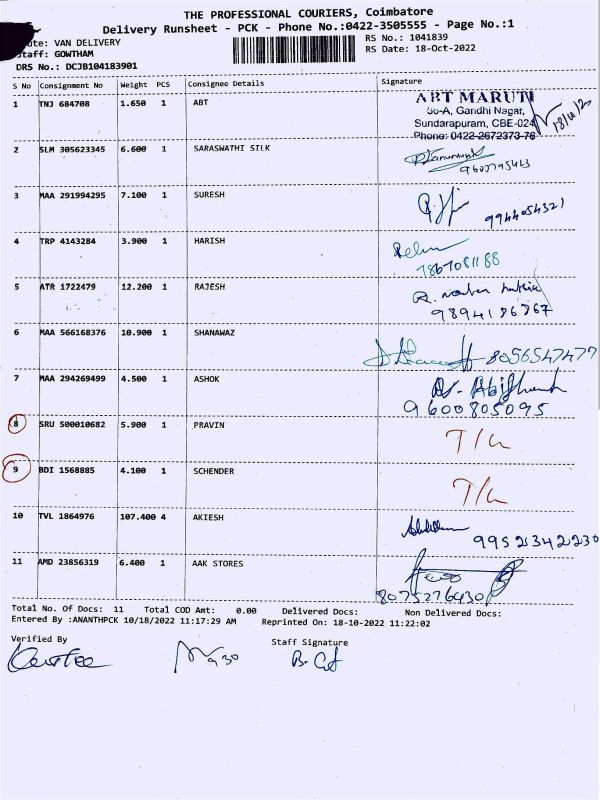 THE PROFESSIONAL COURIERS, Coimbatore
Delivery Runsheet - PCK - Phone No.:0422-3505555 - Page No.:1
ute: VAN DELIVERY
RS No.: 1041839
taff: GOWTHAM
RS Date: 18-Oct-2022
DRS No.: DCJB104183901
S No Consignment No Weight PCS Consignee Details Signature
1 TNJ 684708 1.650 1 ABT
ABT MARUTI
36-A, Gandhi Nagar,
Sundarapuram, CBE-024
Phone: 0422-2672373-76
2 SLM 305623345 6.600 1 SARASWATHI SILK
3 MAA 291994295 7.100 1 SURESH
9944054321
4 TRP 4143284 3.900 1 HARISH
7867081188
5 ATR 1722479 12.200 1 RAJESH
9894196767
6 MAA 566168376 10.900 1 SHANAWAZ
8056547477
7 MAA 294269499 4.500 1 ASHOK
9600805095
8 SRU 500010682 5.900 1 PRAVIN
9 BDI 1568885 4.100 1 SCHENDER
10 TVL 1864976 107.400 4 AKIESH
9952342230
11 AMD 23856319 6.400 1 AAK STORES
8075276430
Total No. Of Docs: 11 Total COD Amt: 0.00 Delivered Docs: Non Delivered Docs:
Entered By :ANANTHPCK 10/18/2022 11:17:29 AM Reprinted On: 18-10-2022 11:22:02
Verified By Staff Signature